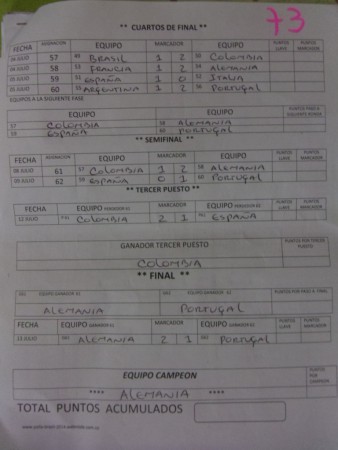 73
** CUARTOS DE FINAL **
FECHA ASIGNACION EQUIPO MARCADOR EQUIPO PUNTOS LLAVE PUNTOS MARCADOR
04 JULIO 57 49 BRASIL 1 2 50 COLOMBIA
04 JULIO 58 53 FRANCIA 1 2 54 ALEMANIA
05 JULIO 59 51 ESPAÑA 1 0 52 ITALIA
05 JULIO 60 55 ARGENTINA 1 2 56 PORTUGAL
EQUIPOS A LA SIGUIENTE FASE
EQUIPO EQUIPO
57 COLOMBIA 58 ALEMANIA
59 ESPAÑA 60 PORTUGAL
** SEMIFINAL **
FECHA ASIGNACION EQUIPO MARCADOR EQUIPO PUNTOS LLAVE PUNTOS MARCADOR
08 JULIO 61 57 COLOMBIA 1 2 58 ALEMANIA
09 JULIO 62 59 ESPAÑA 0 1 60 PORTUGAL
** TERCER PUESTO **
FECHA EQUIPO MARCADOR EQUIPO PUNTOS LLAVE PUNTOS MARCADOR
12 JULIO COLOMBIA 2 1 ESPAÑA
GANADOR TERCER PUESTO
COLOMBIA
** FINAL **
EQUIPO GANADOR 61 EQUIPO GANADOR
ALEMANIA PORTUGAL
FECHA EQUIPO MARCADOR EQUIPO PUNTOS LLAVE PUNTOS MARCADOR
13 JULIO ALEMANIA 2 1 PORTUGAL
EQUIPO CAMPEON PUNTOS POR CAMPEON
**** ALEMANIA ****
TOTAL PUNTOS ACUMULADOS